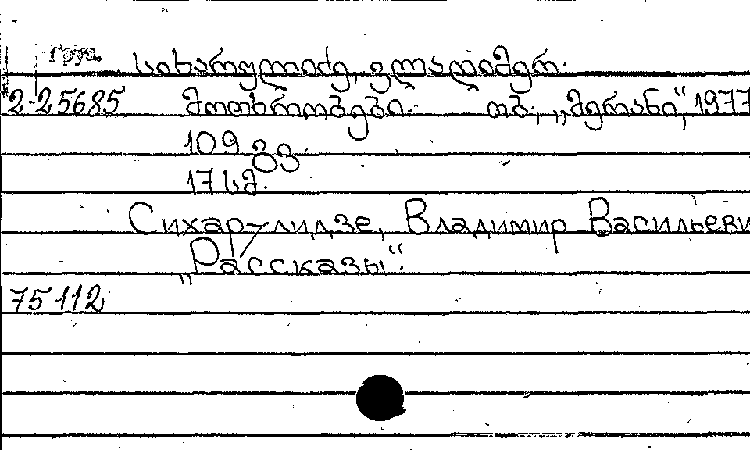 Груз.
სიხარულიძე, ვლადიმერ.
2-25685 მოთხრობები. თბ., „მერანი“, 1977
109 გვ.
17 სმ.
Сихарулидзе, Владимир Васильеви
„Рассказы“.
75112